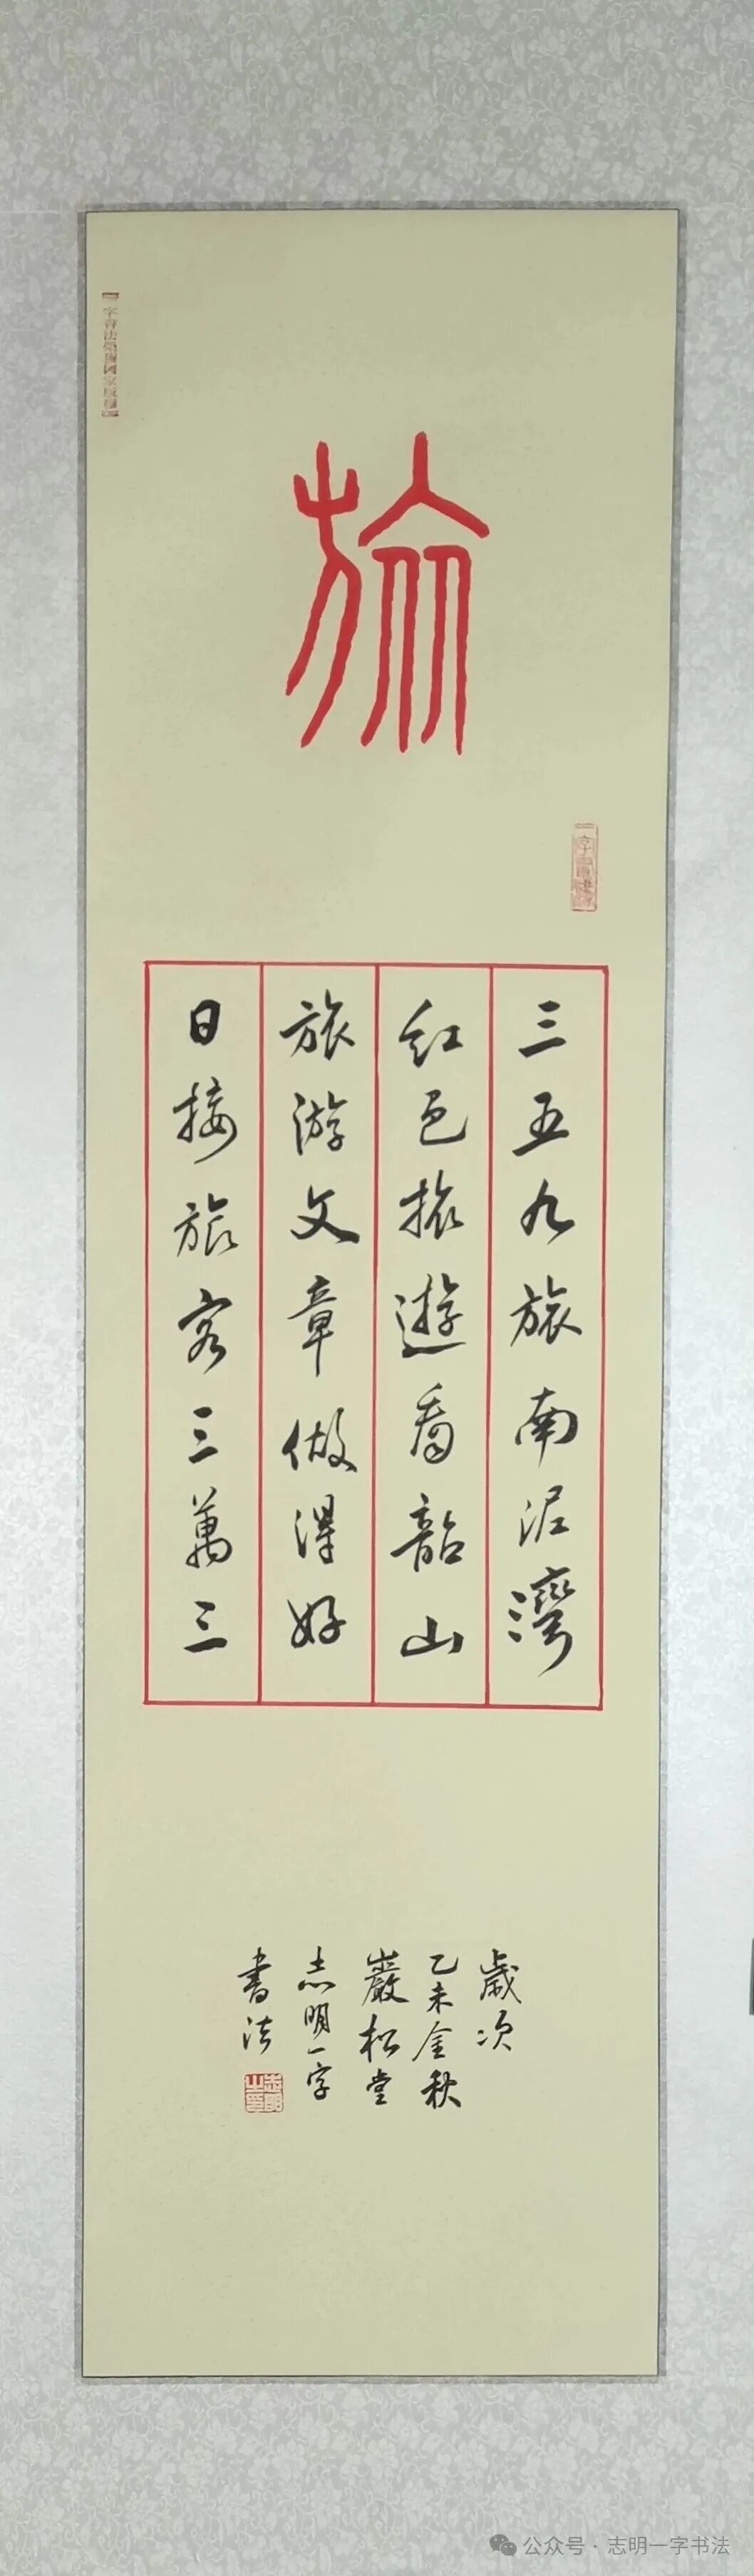 旅
三五九旅南泥灣
紅色旅遊看韶山
旅游文章做得好
日接旅客三萬三
歲次
乙未金秋
巖松堂
志明一字
書法
公众号·志明一字书法